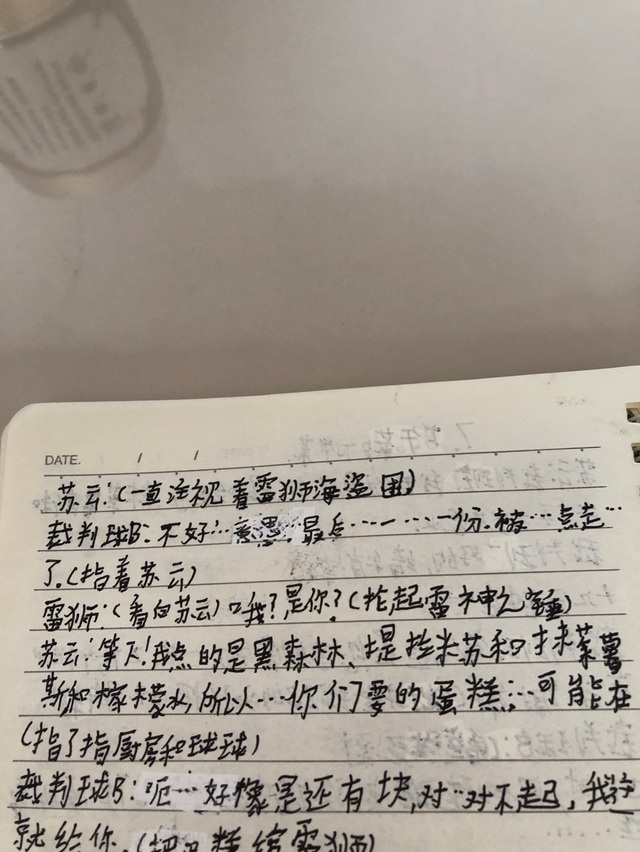 DATE. / /
苏云:(一直注视着雷狮海盗团)
裁判球B:不好…意思…最后…一…一份.被…点走…
了.(指着苏云)
雷狮:(看向苏云)哦?是你?(抡起雷神之锤)
苏云:等下!我点的是黑森林、提拉米苏和抹茶慕
斯和檬檬水,所以…你们要的蛋糕…可能在
(指了指厨房和球球)
裁判球B:呃…好像是还有块,对…对不起,我
就给你.(把蛋糕给雷狮)